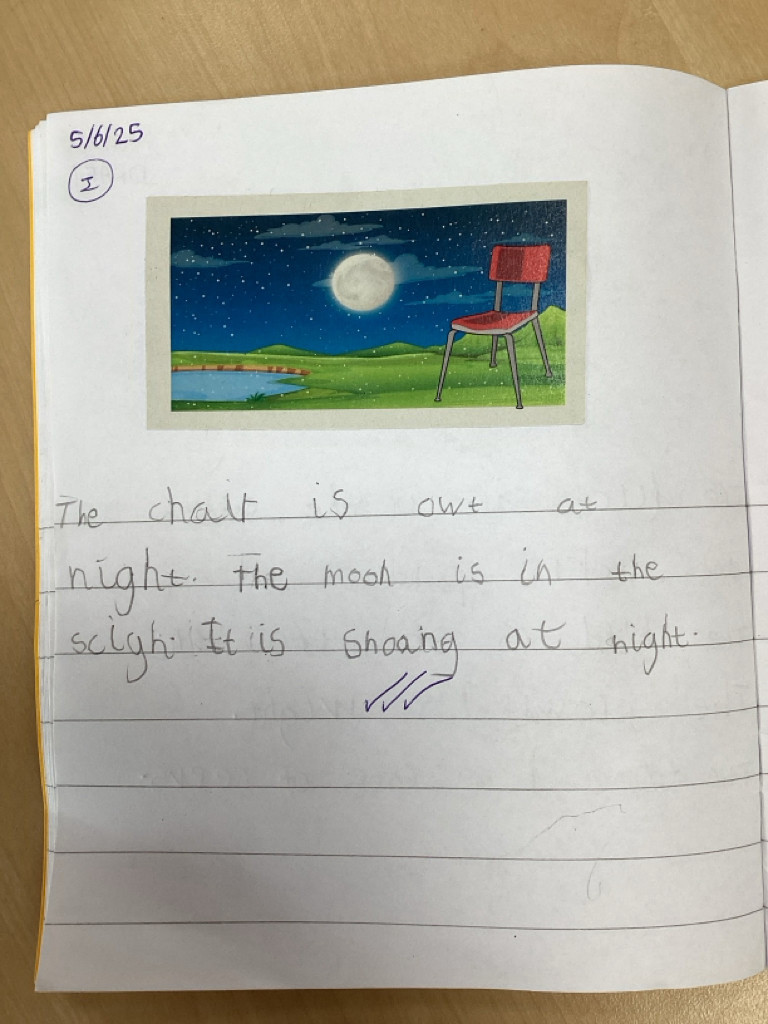 5/6/25
I
The chair is owt at
night. The moon is in the
scigh. It is Shoaing at night.